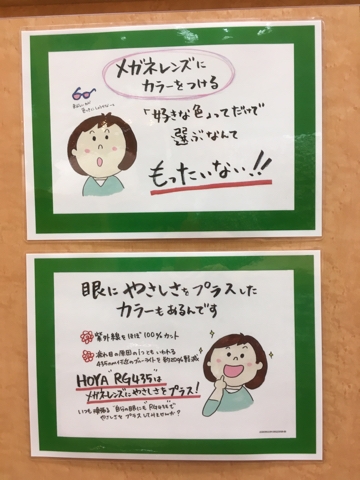 メガネレンズに
カラーをつける
「好きな色」ってだけで
選ぶなんて
もったいない!!
眼にやさしさをプラスした
カラーもあるんです
紫外線をほぼ100%カット
疲れ目の原因の1つともいわれる
435nm付近のブルーライトを約20%軽減
"HOYA RG435"は
メガネレンズにやさしさをプラス!
いつも頑張る"自分の眼にも"RG435で
やさしさをプラスしてみませんか?